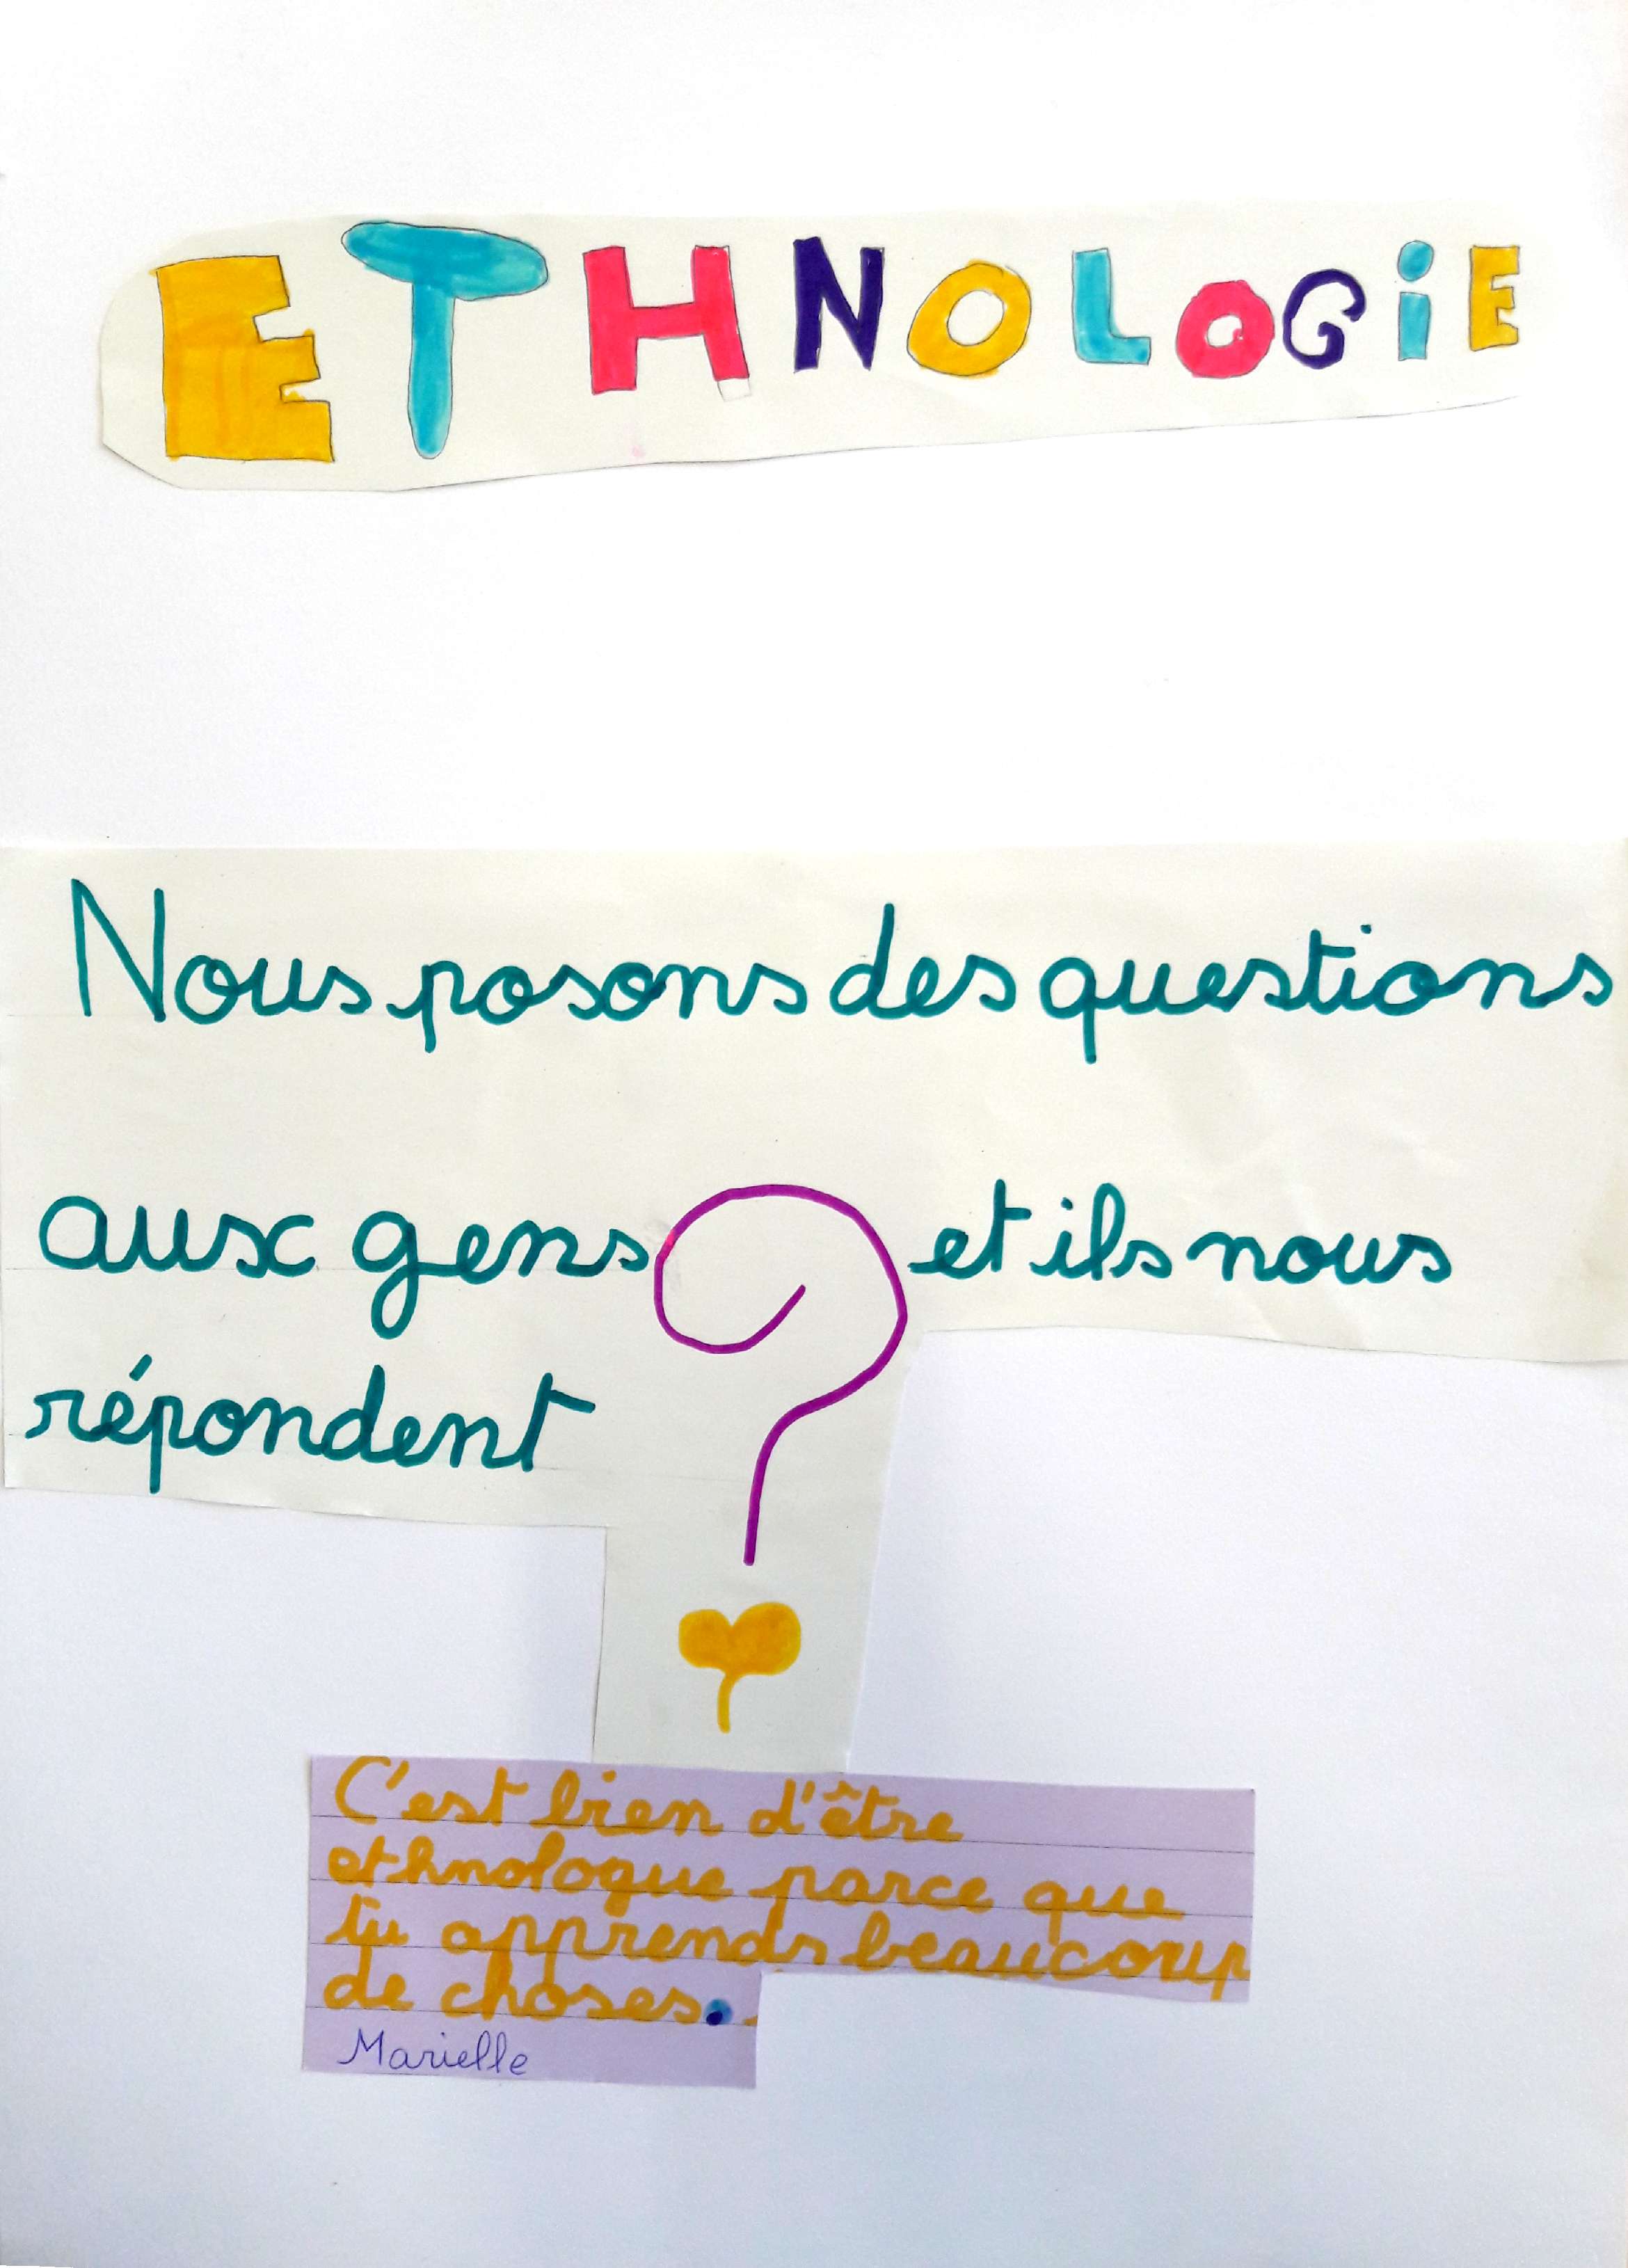 ETHNOLOGiE
Nous posons des questions
aux gens ? et ils nous
répondent
C'est bien d'être
ethnologue parce que
tu apprends beaucoup
de choses.
Marielle